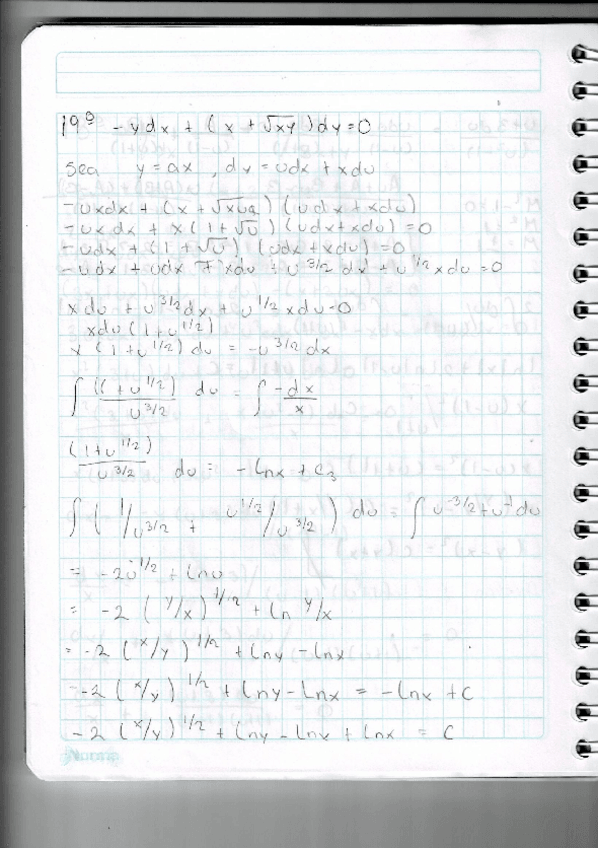 19.9 -ydx + (x + √xy)dy=0
Sea y=ax, dy = udx + xdu
-uxdx + (x + √xux) (udx + xdu)
-uxdx + x(1+√u) (udx + xdu) = 0
-udx + (1+√u) (udx + xdu) = 0
-udx + udx + xdu + u^3/2 dx + u^1/2 xdu = 0
xdu + u^3/2 dx + u^1/2 xdu = 0
xdu (1+u^1/2)
x (1+u^1/2) du = -u^3/2 dx
∫ ((1+u^1/2)/u^3/2 du = ∫ -dx/x
(1+u^1/2)/u^3/2 du = -lnx + c₃
∫ (1/u^3/2 + u^1/2/u^3/2) du = ∫ u^-3/2 + u^-1 du
= -2u^-1/2 + lnu
= -2 (y/x)^1/-2 + ln y/x
= -2 (x/y)^1/2 + lny - lnx
-2 (x/y)^1/2 + lny - lnx = -lnx + c
-2 (x/y)^1/2 + lny - lnx + lnx = c
Norma